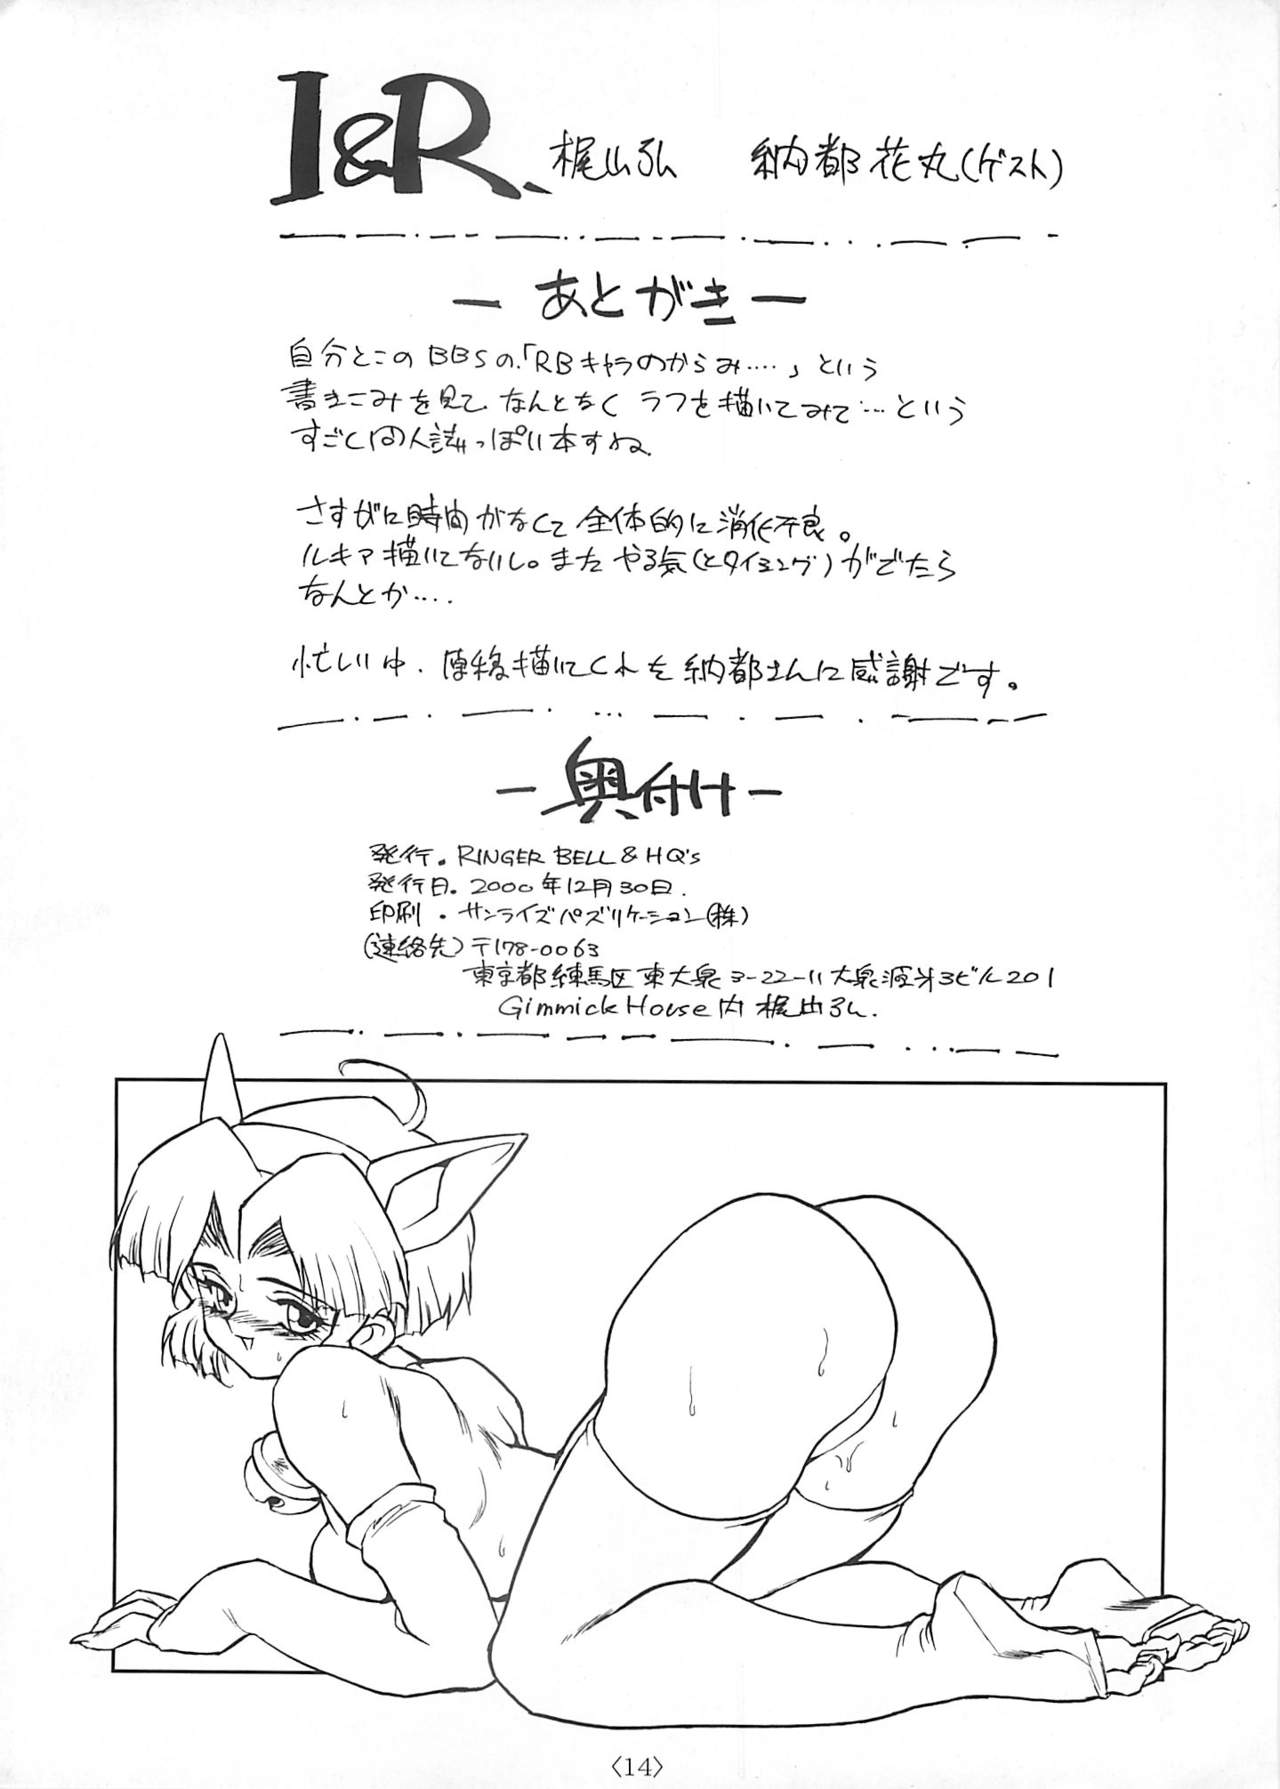 I&R
梶山弘　納都花丸(ゲスト)
－あとがき－
自分とこのBBSの「RBキャラのからみ‥‥」という
書きこみを見て、なんとなくラフを描いてみて…という
すごく同人誌っぽい本すね。
さすがに時間がなくて全体的に消化不良。
ルキア描いてないし。またやる気(とタイミング)がでたら
なんとか‥‥.
忙しい中、原稿描いてくれた納都さんに感謝です。
－奥付け－
発行。RINGER BELL & HQ's
発行日。2000年12月30日.
印刷・サンライズパブリケーション(株)
(連絡先)〒178-0063
東京都練馬区東大泉3-22-11大泉 ビル201
Gimmick House内 梶山弘.
〈14〉